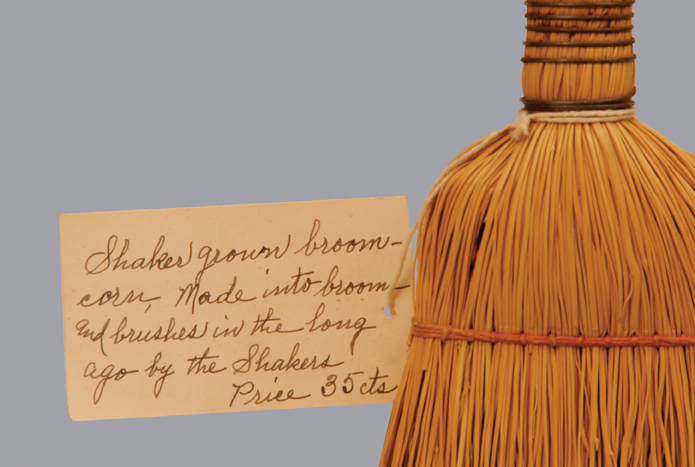 Shaker grown broom-
corn, Made into broom-
and brushes in the long
ago by the Shakers
Price 35cts